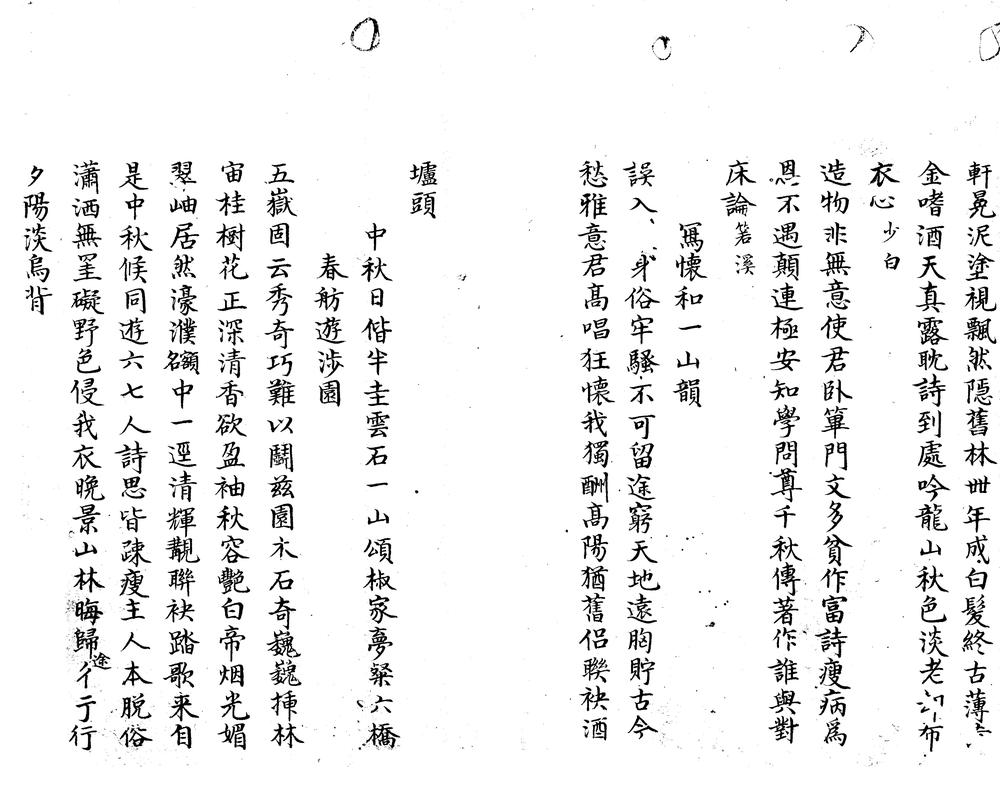 軒冕泥塗視飄然隱舊林卅年成白髮終古薄
金嗜酒天真露耽詩到處吟龍山秋色淡老布
衣心少白
造物非無意使君臥篳門文多貧作富詩瘦病爲
恩不遇顛連極安知學問尊千秋傳著作誰與對
床論箬溪
寫懷和一山韻
誤入身俗牢騷不可留途窮天地遠胸貯古今
愁雅意君高唱狂懷我獨酬高陽猶舊侶聯袂酒
壚頭
中秋日偕半圭雲石一山頌椒家夢琹六橋
春舫遊涉園
五嶽固云秀奇巧難以鬭茲園木石奇巍巍揷林
宙桂樹花正深清香欲盈袖秋容艷白帝烟光媚
翠岫居然濠濮名額中一逕清輝覯聯袂踏歌来自
是中秋候同遊六七人詩思皆疎瘦主人本脱俗
瀟洒無罣礙野色侵我衣晚景山林晦歸途彳亍行
夕陽淡烏背